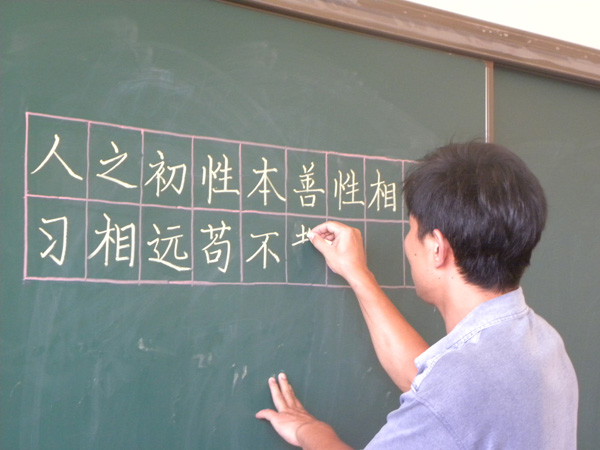 人之初性本善性相
习相远苟不